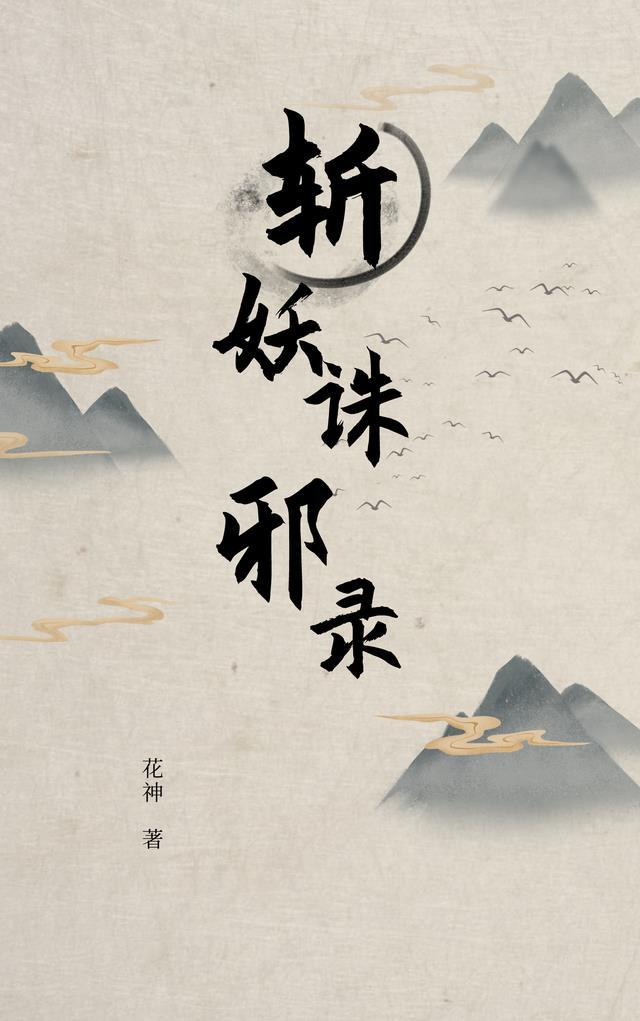 斩妖诛邪录
花神 著